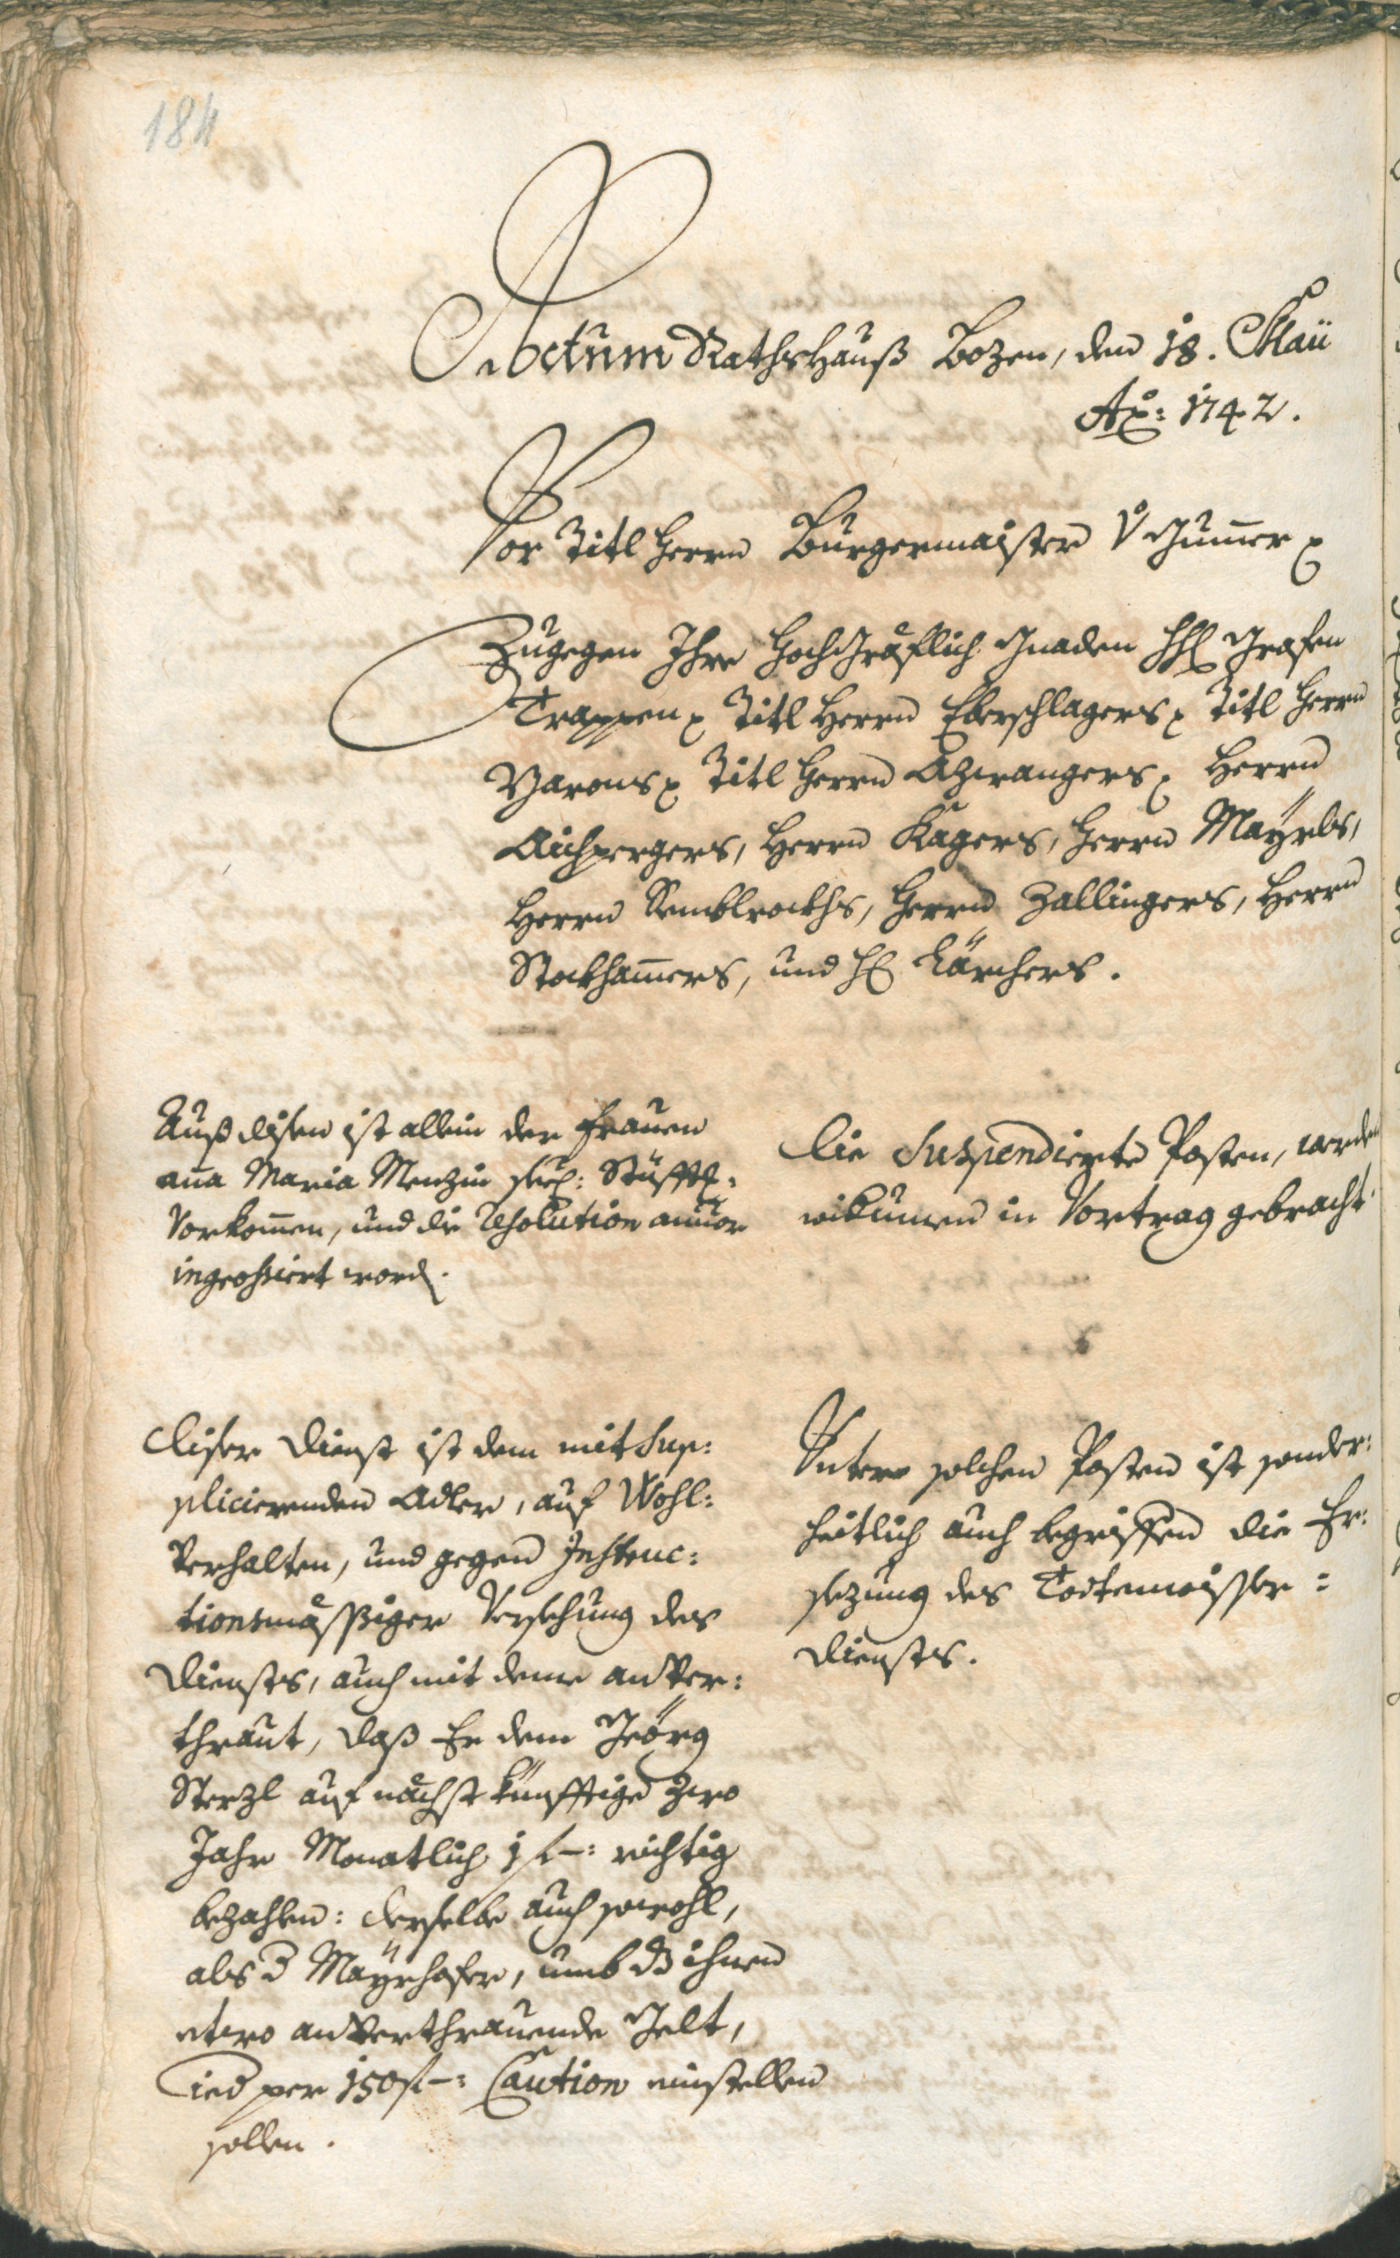 184
Actum Rathshauß Bozen, den 18. Maii
Ao: 1742.
Vor Titl Herrn Burgermaister v Gumer
Zugegen Ihro Hochgräflich Gnaden Grafen
Trappen Titl Herrn Eberschlagers Titl Herrn
Marons Titl Herrn Azwangers Herrn
Aichpergers, Herrn Kagers, Herrn Mayrls,
Herrn Semblrockhs, Herrn Zallingers, Herrn
Stockhamers, und H Kärchers.
Auß disen ist allein der Frauen
anna Maria Menzin Stüfft
Vorkomen, und die resolution
ingrossiert word.
Die Suspendierte Posten, werden
widerumen in Vortrag gebracht.
Diser Dienst ist dem mit Sup:
plicierenden Adler, auf Wohl:
Verhalten, und gegen Instruc:
tionsmässiger Versehung des
Diensts, auch mit deme anVer:
thraut, daß Er dem Geörg
Sterzl auf nächst künfftige zwo
Jahr Monatlich 1 f –: richtig
bezahlen: derselbe auch sowohl,
als d Mayrhofer, umb dz ihnen
etwo anVerthrauende Gelt,
ied per 150 f –: Caution einstellen
sollen.
Unter solchen Posten ist sonder:
heitlich auch begriffen die Er:
sezung des Todtenmaisser=
Diensts.